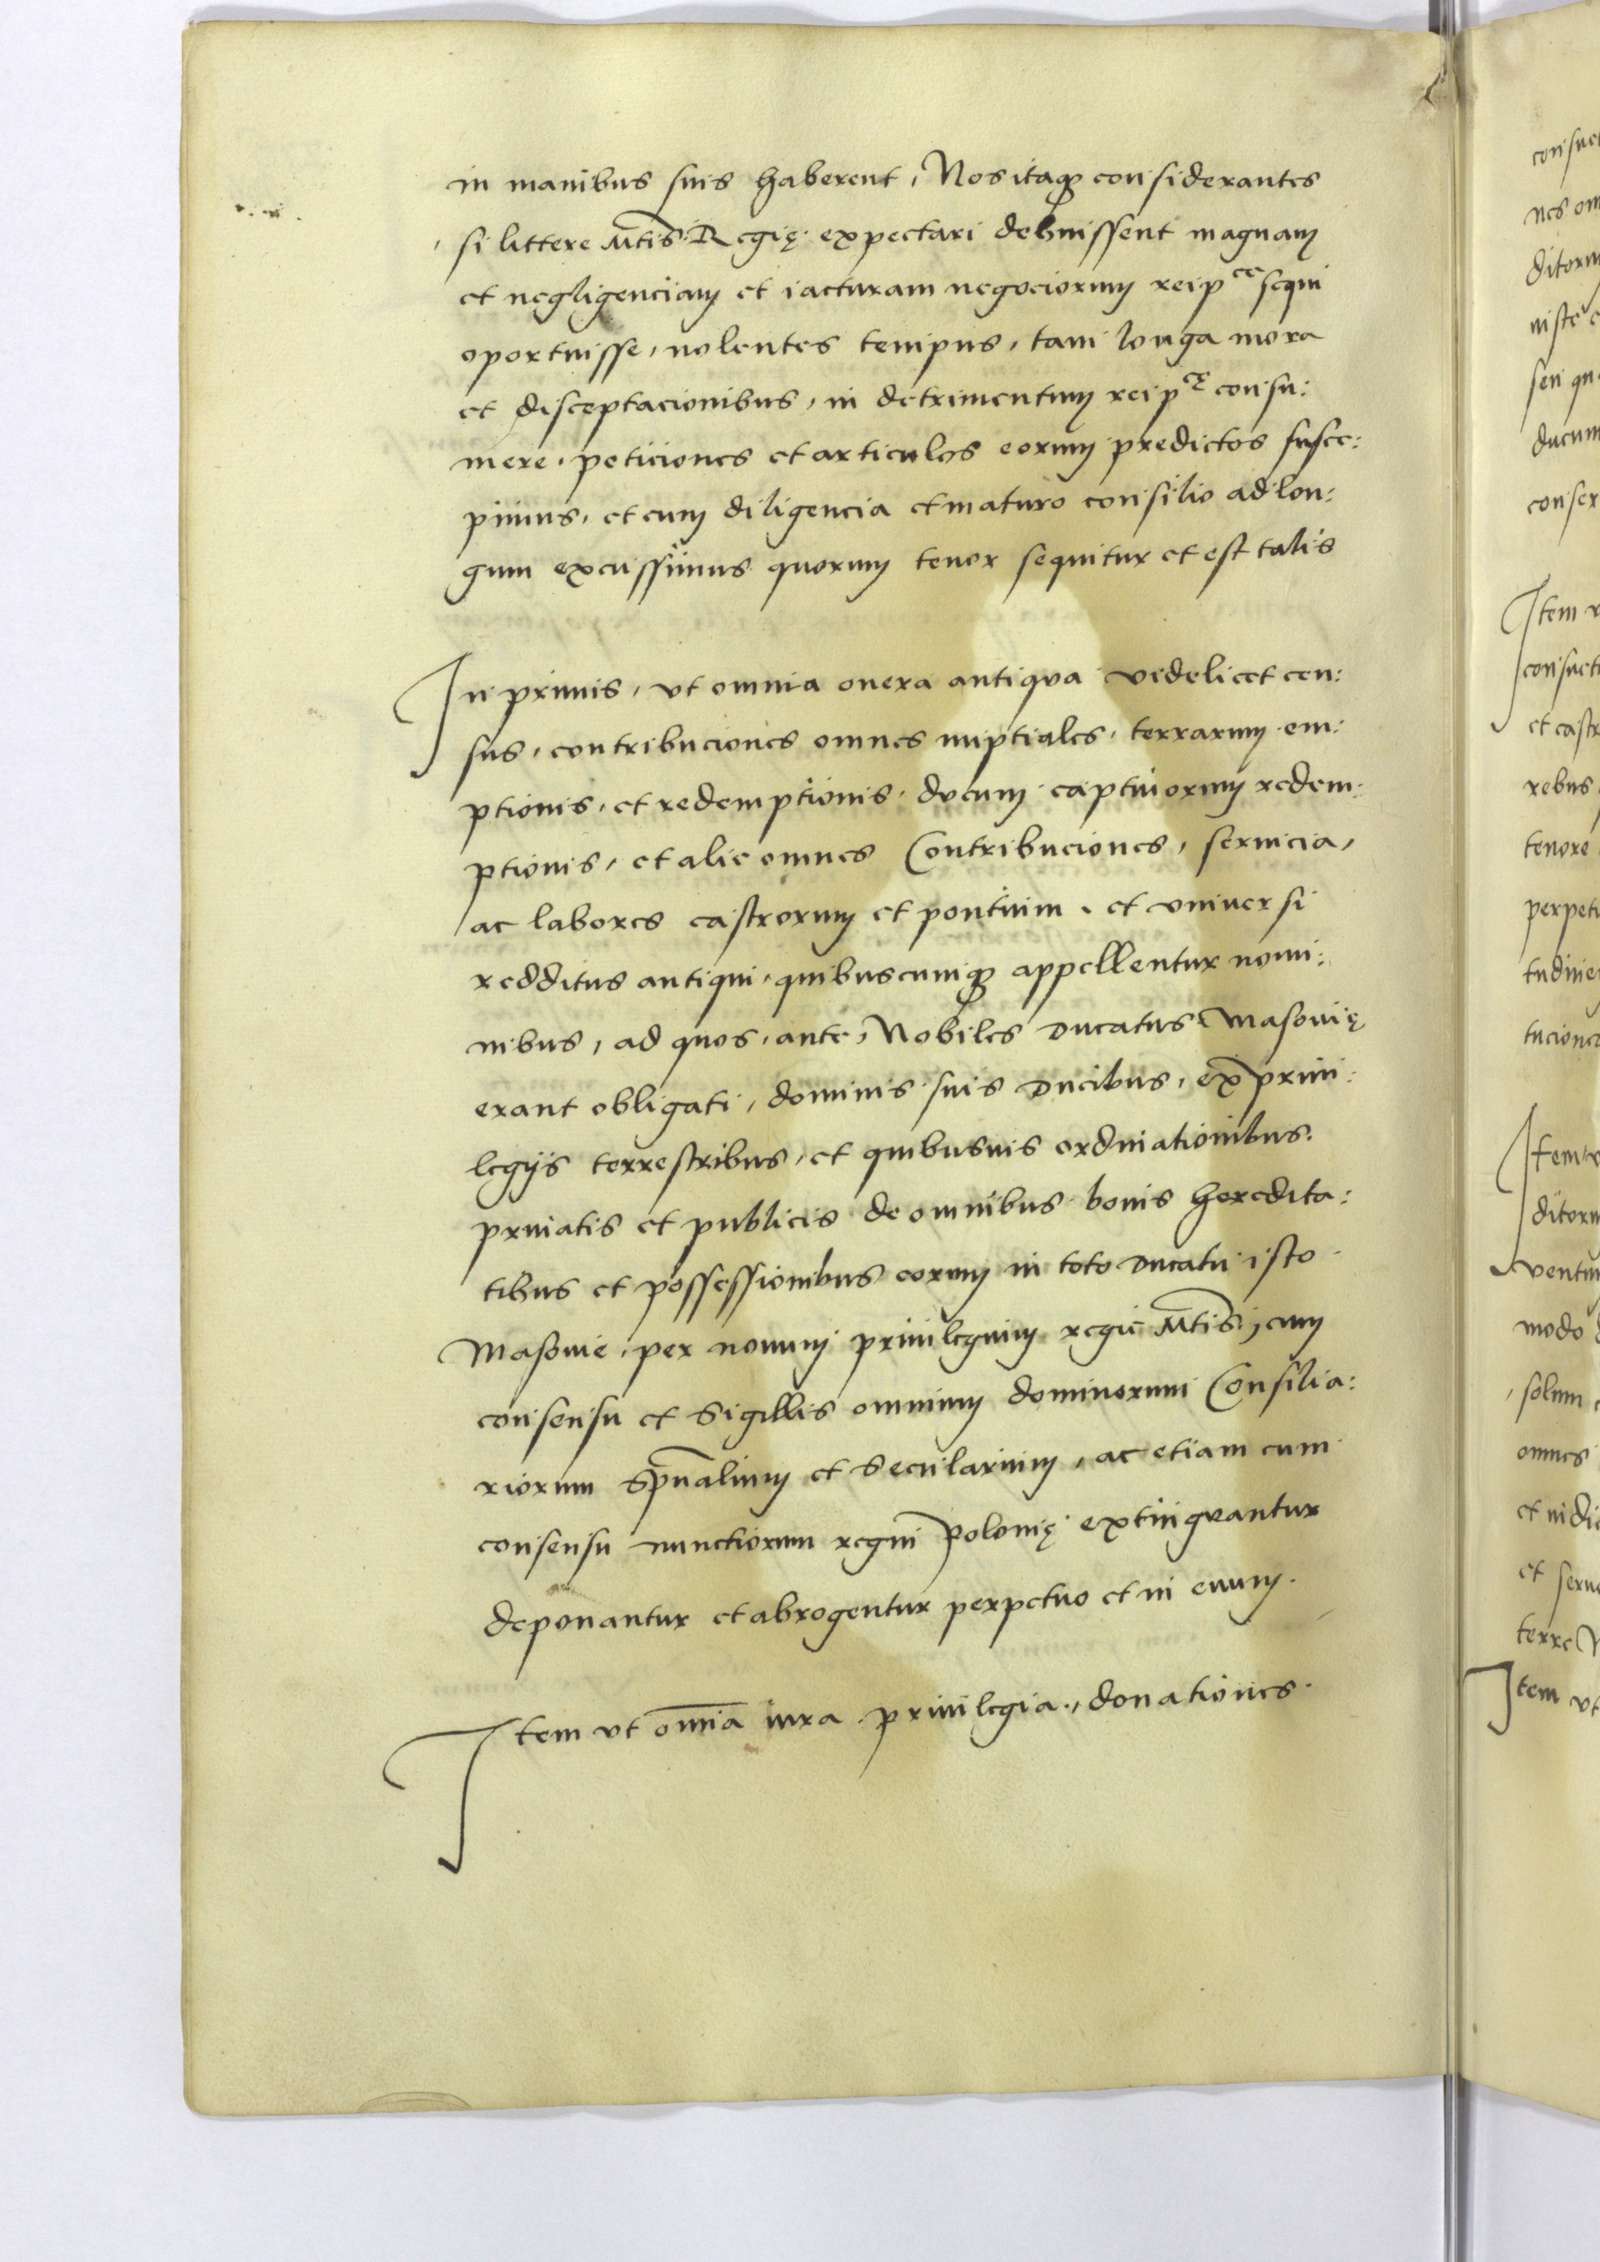 in manibus suis haberent, Nos itaq considerantes
si littere Mtis Regię expectari debuissent magnam
et negligenciam et iacturam negociorum reip ce sequi
oportuisse, nolentes tempus, tam longa mora
et disceptacionibus, in detrimentum reip ce consu:
mere, peticiones et articulos eorum predictos susce:
pimus, et cum diligencia et maturo consilio ad lon:
gum excussimus quorum tenor sequitur et est talis
In primis, vt omnia onera antiqua videlicet cen:
sus, contribuciones omnes nuptiales, terrarum em:
ptionis, et redemptionis, ducum captiuorum redem:
ptionis, et alie omnes Contribuciones, seruicia,
ac labores castrorum et pontium, et vniuersi
redditus antiqui, quibuscumq appellentur nomi:
nibus, ad quos, ante, Nobiles Ducatus Masouię
erant obligati, dominis suis Ducibus, ex priui:
legijs terrestribus, et quibusuis ordinationibus
priuatis et publicis de omnibus bonis heredita:
tibus et possessionibus eorum in toto Ducatu isto
Masouie, per nouum priuilegium regie Mtis, cum
consensu et Sigillis omnium dominorum Consilia:
riorum Spualium et Secularium, ac etiam cum
consensu nunctiorum regni Polonię extinguantur
deponantur et abrogentur perpetuo et in euum.
Item vt omia iura priuilegia, donationes
consuet
nes om
ditorum
niste
seu qu
ducum
conser
Item v
consuetu
et castr
rebus
tenore
perpetu
tudine
tucione
Item v
ditorum
ventum
modo
solum
omnes
et iudic
et serue
terre
Item vt